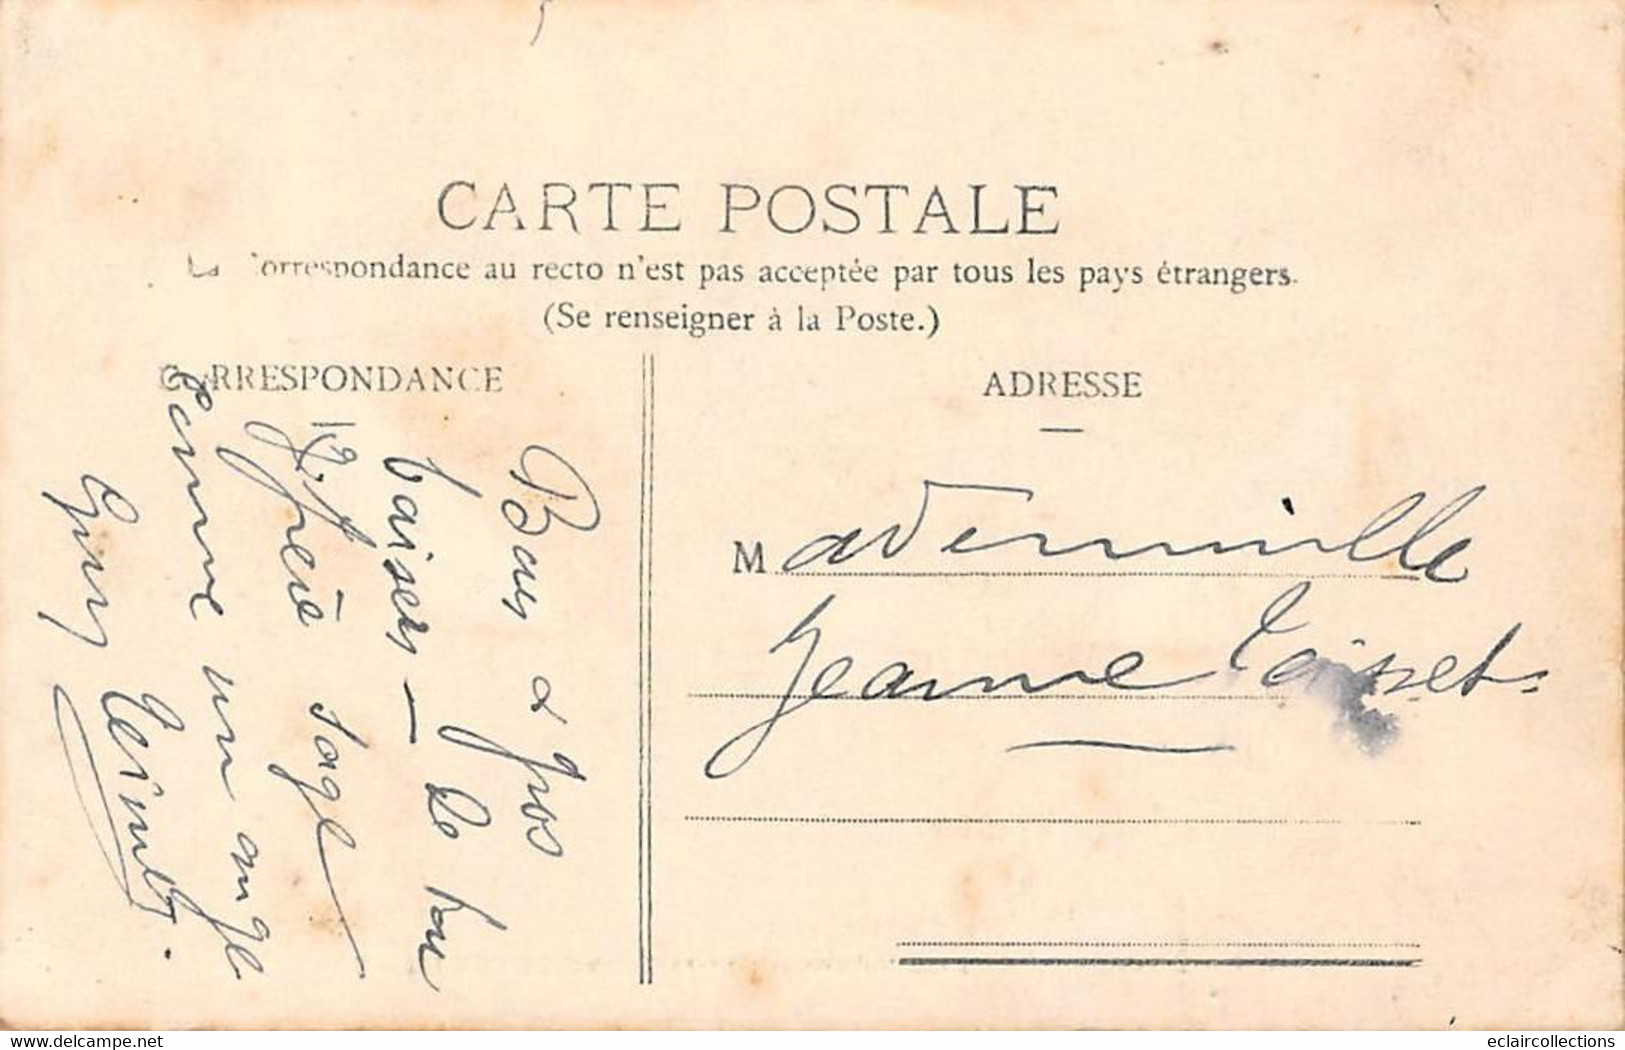 CARTE POSTALE
La Correspondance au recto n'est pas acceptée par tous les pays étrangers.
(Se renseigner à la Poste.)
CORRESPONDANCE
Bons & gros
baisers — Le bon
P. frère sage
comme un ange
ADRESSE
Mademoiselle
Jeanne
eclaircollections